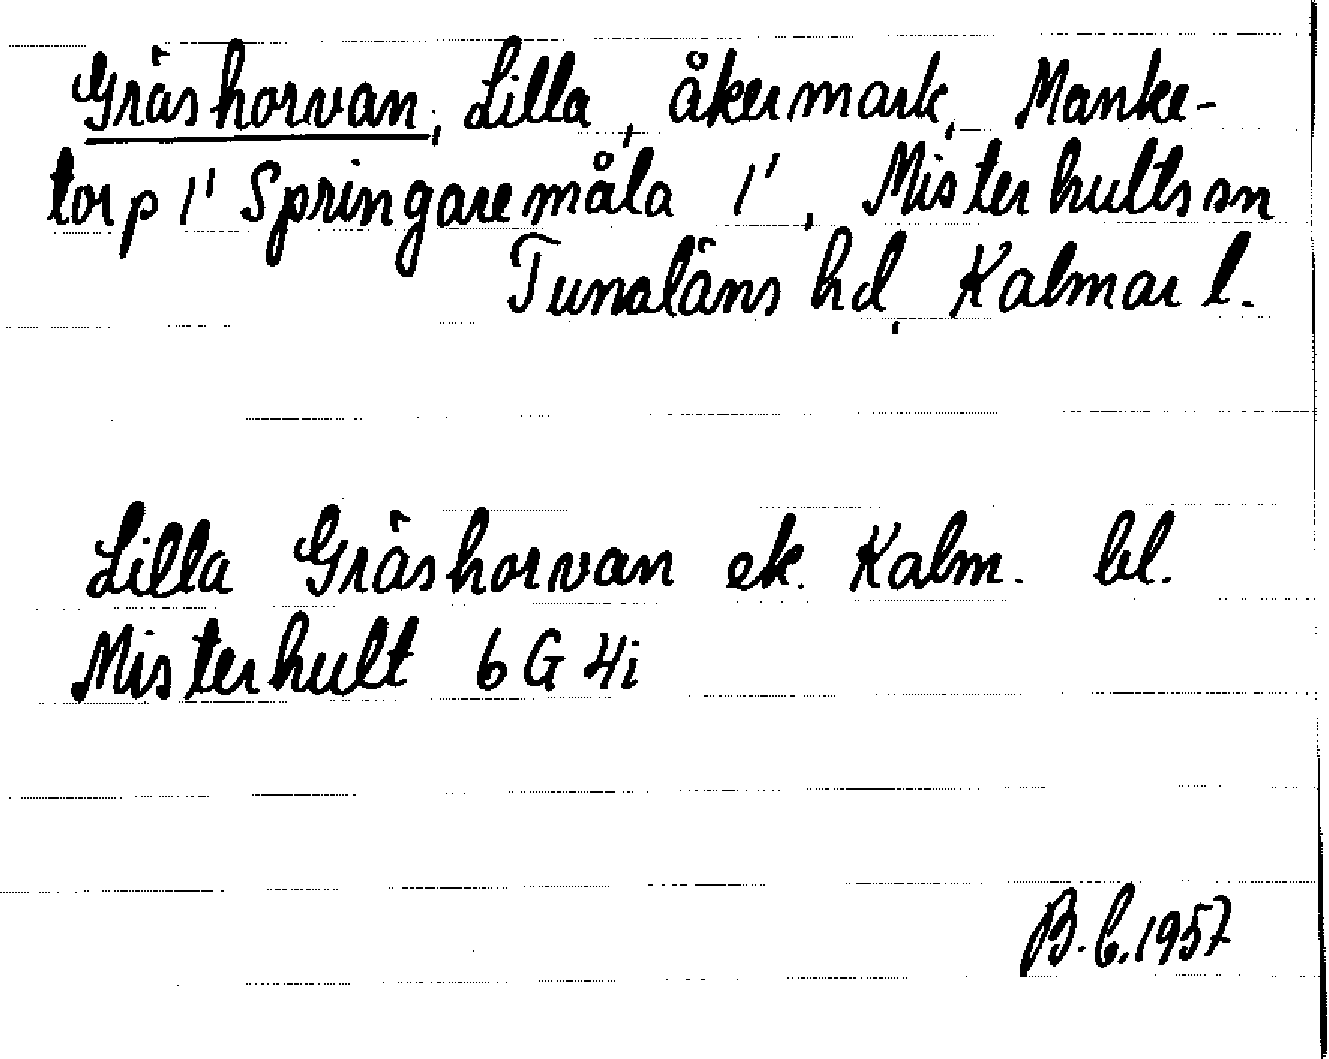 Gräshorvan, Lilla, åkermark, Manke-
torp 1¹ Springaremåla 1¹, Misterhults sn
Tunaläns hd, Kalmar l.
Lilla Gräshorvan ek. Kalm. bl.
Misterhult 6 G 4i
B.C. 1957